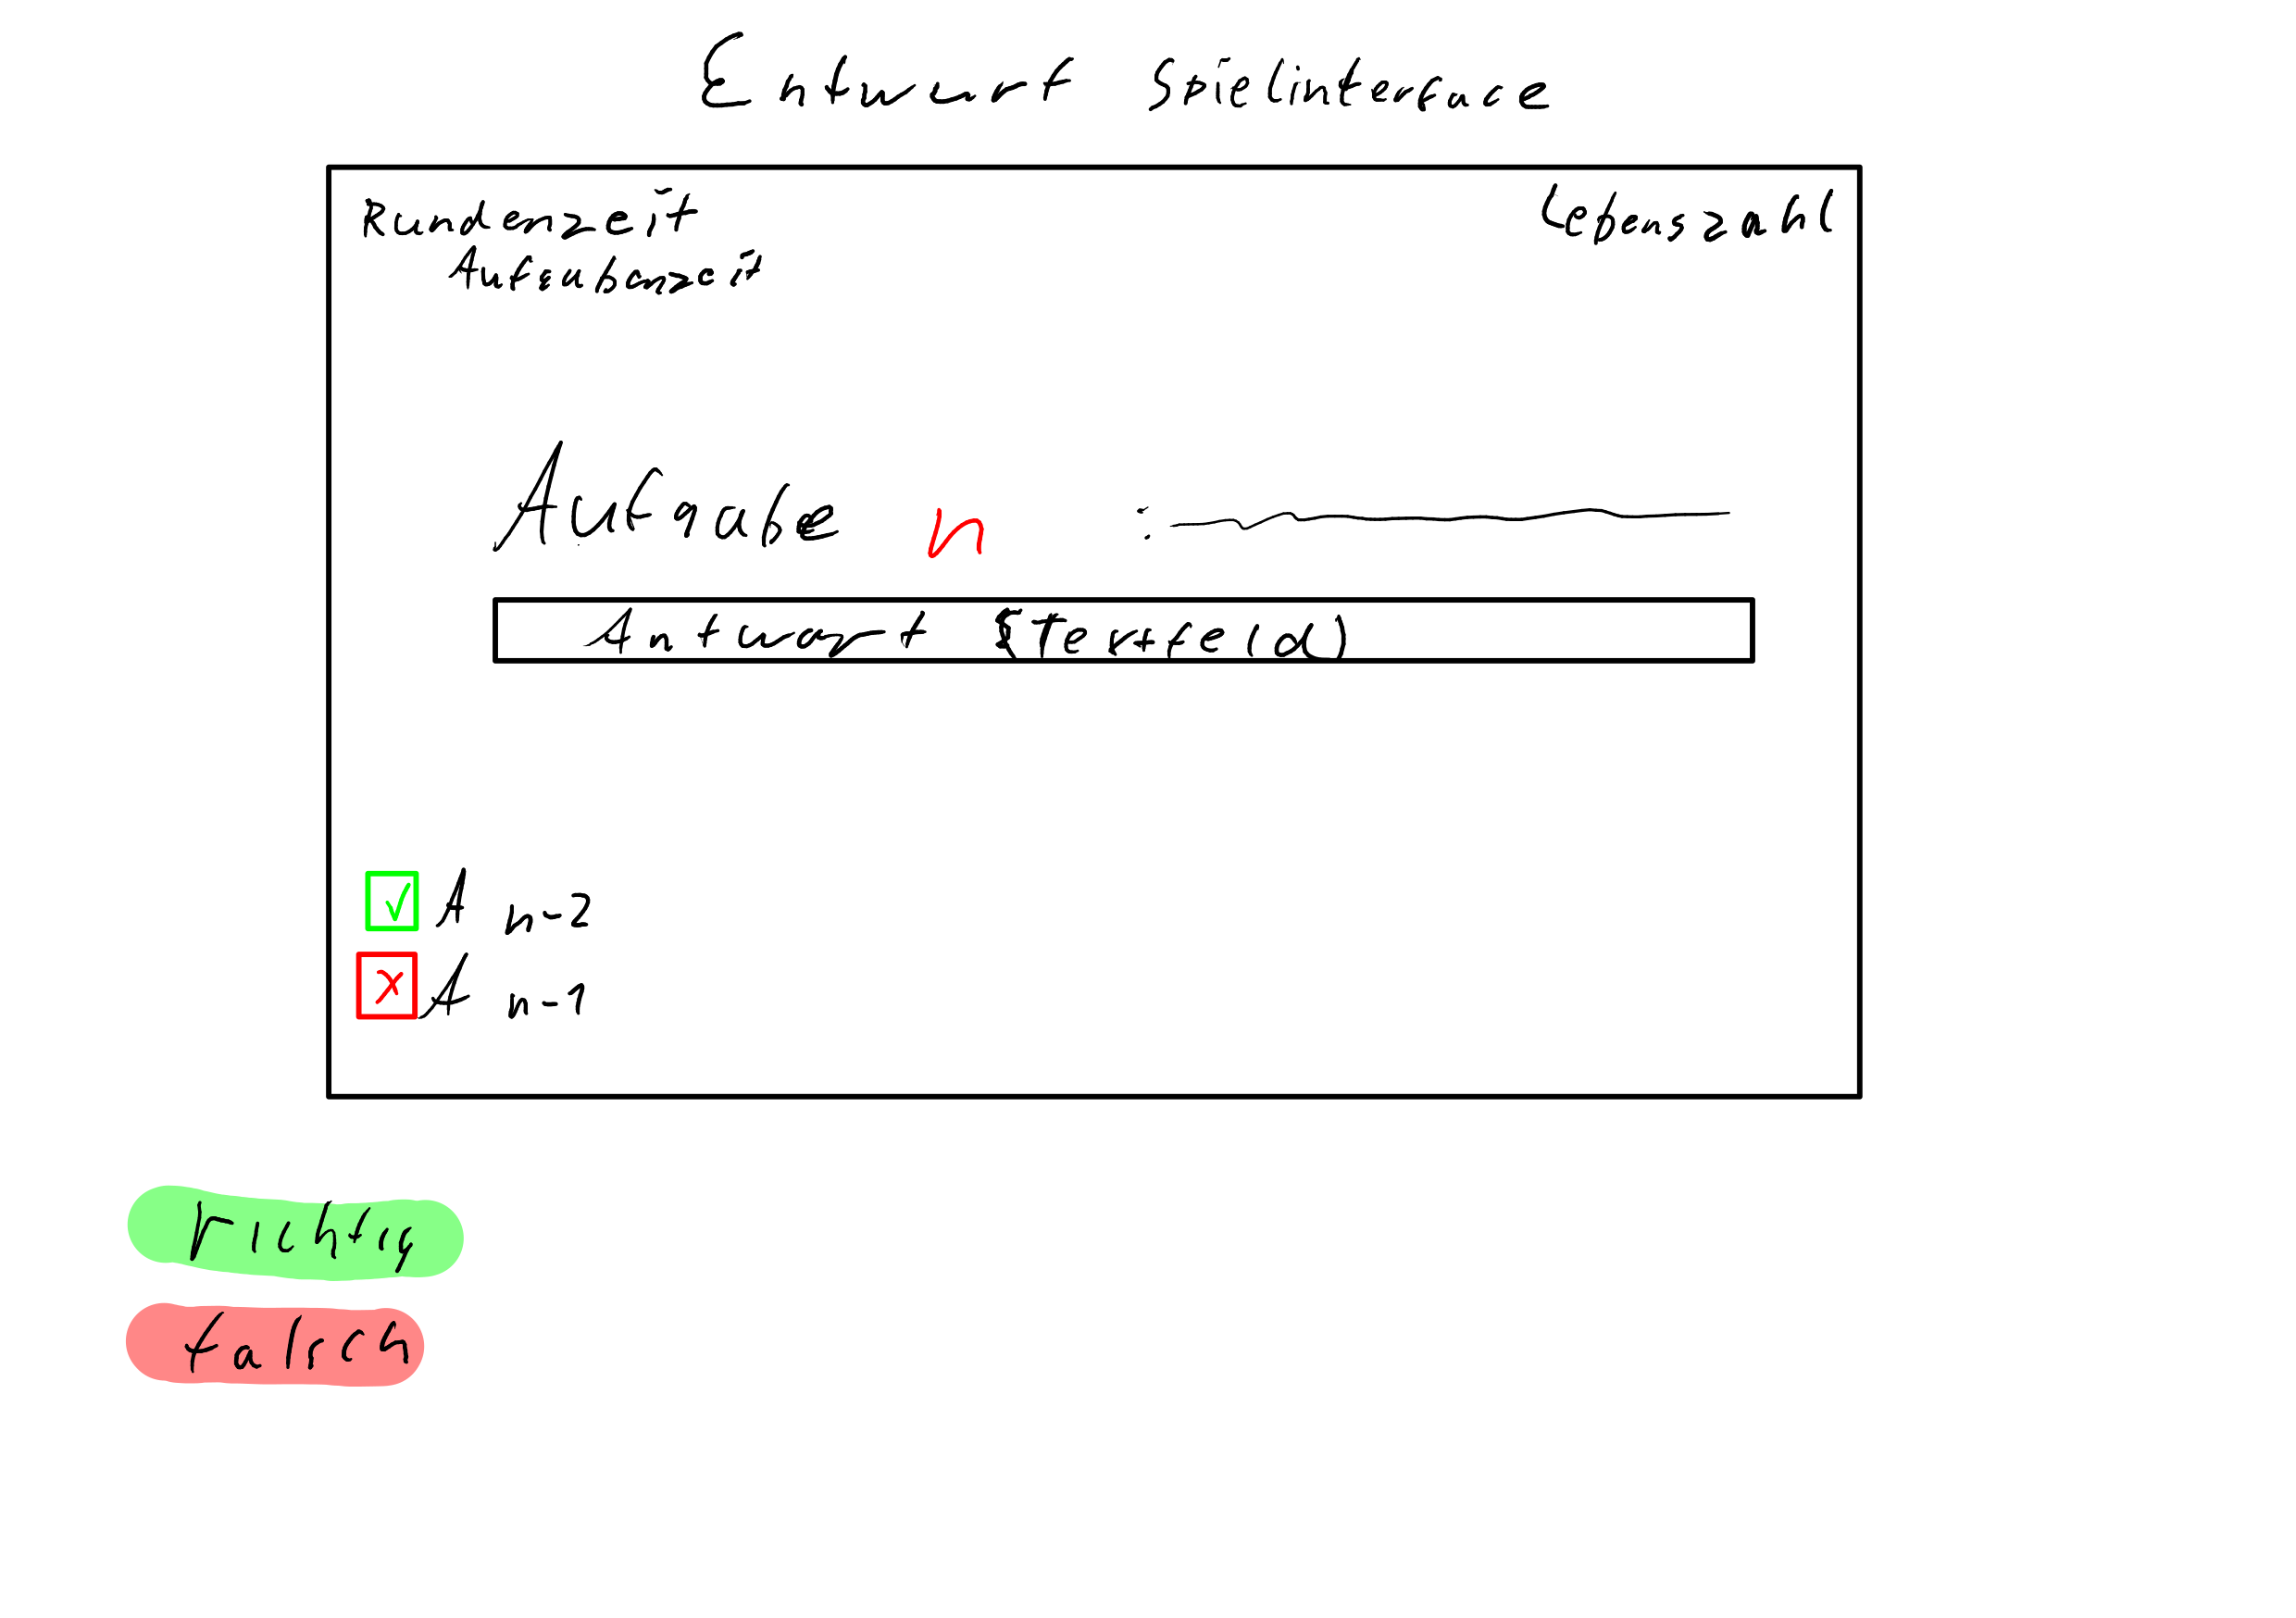 Entwurf Spielinterface
Rundenzeit
Lebenszahl
Aufgabenzeit
Aufgabe n :
Antwort (Textfeld)
✓ A n-2
X A n-1
richtig
falsch